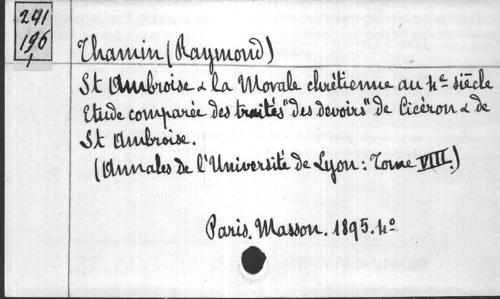 241
196
1
Thamin (Raymond)
St Ambroise & la Morale chrétienne au 4e siècle
Etude comparée des traités "des devoirs" de Cicéron & de
St Ambroise.
(Annales de l'Université de Lyon : Tome VIII.)
Paris. Masson. 1895. 4o